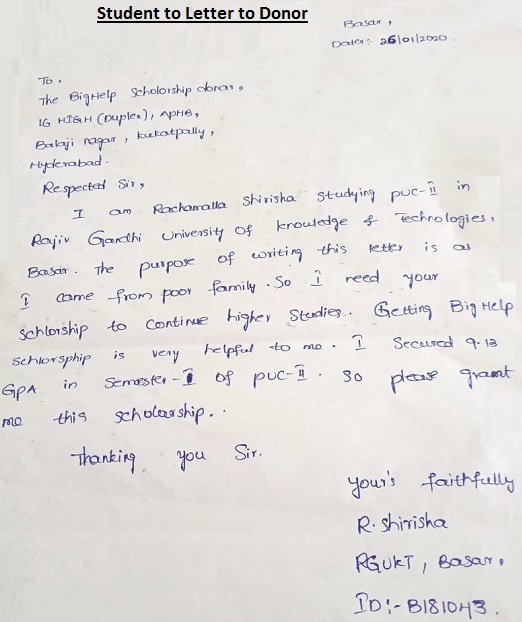 Student to Letter to Donor
Basar,
Date:- 26/01/2020.
To,
The BigHelp Scholorship donar,
IG HIGH (Duplex), APHB,
Balaji nagar, kukatpally,
Hyderabad.
Respected Sir,
I am Rachamalla Shirisha studying puc-II in
Rajiv Gandhi University of knowledge & Technologies,
Basar. The purpose of writing this letter is as
I came from poor family. So I need your
schlorship to continue higher studies. Getting Big Help
schlorsphip is very helpful to me. I Secured 9.13
GPA in Semester-I of puc-II. So please grant
me this scholarship..
Thanking you Sir.
your's faithfully
R. shirisha
RGUKT, Basar,
ID:- B181043.